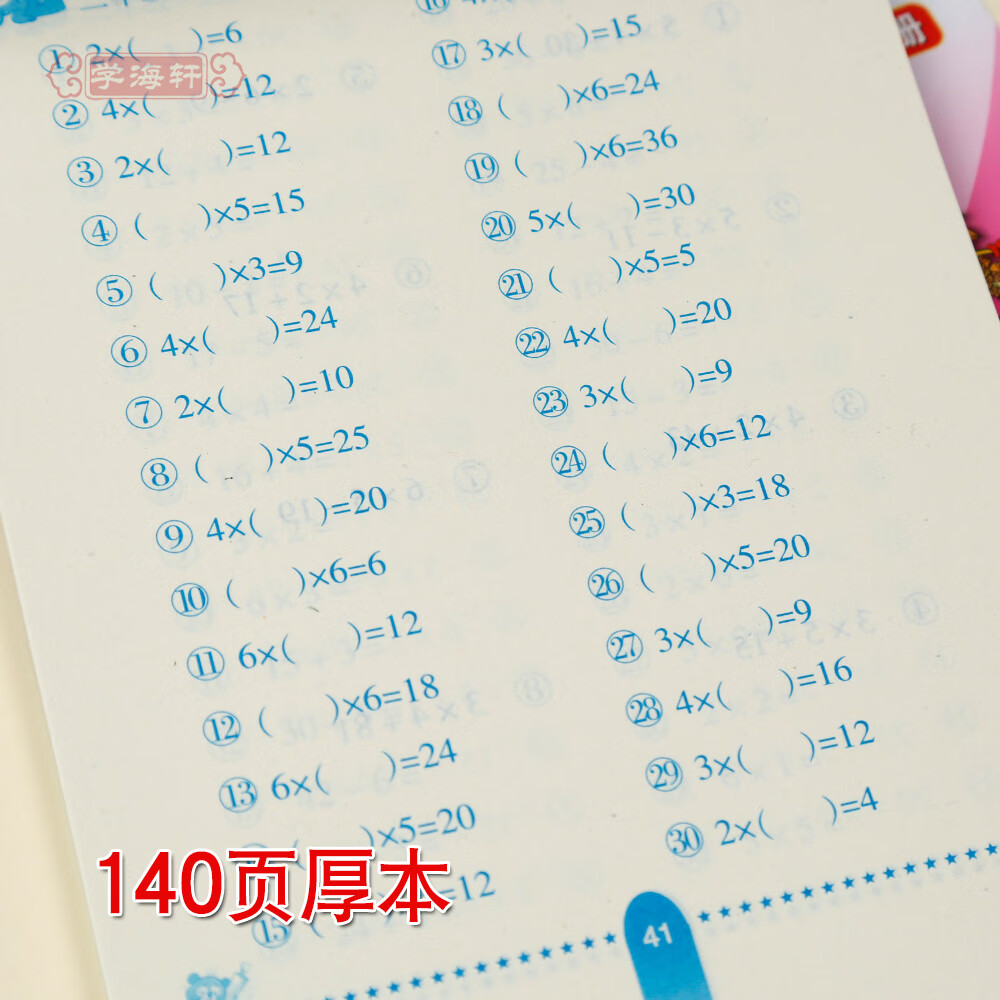 ① 2×( )=6
学海轩
② 4×( )=12
③ 2×( )=12
④ ( )×5=15
⑤ ( )×3=9
⑥ 4×( )=24
⑦ 2×( )=10
⑧ ( )×5=25
⑨ 4×( )=20
⑩ ( )×6=6
⑪ 6×( )=12
⑫ ( )×6=18
⑬ 6×( )=24
( )×5=20
⑮ ( =12
140页厚本
⑰ 3×( )=15
⑱ ( )×6=24
⑲ ( )×6=36
⑳ 5×( )=30
㉑ ( )×5=5
㉒ 4×( )=20
㉓ 3×( )=9
㉔ ( )×6=12
㉕ ( )×3=18
㉖ ( )×5=20
㉗ 3×( )=9
㉘ 4×( )=16
㉙ 3×( )=12
㉚ 2×( )=4
41